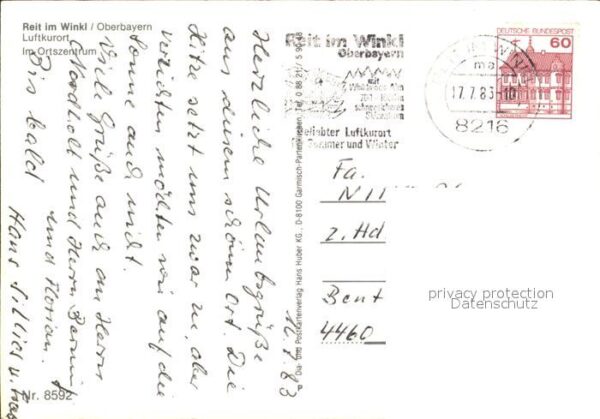 Reit im Winkl / Oberbayern
Luftkurort
Im Ortszentrum
Herzliche Urlaubsgrüße
aus diesem schönen Ort. Die
Hitze setzt uns zwar zu, aber
verzichten möchten wir auf die
Sonne auch nicht.
Viel Grüße auch an Herrn
Nordholt und Herrn
und Florian.
Bis bald
Hans
16.7.83
Nr. 8592
Dia- und Postkartenverlag Hans Huber KG., D-8100 Garmisch-Partenkirchen, Tel. 0 88 21 /
Reit im Winkl
Oberbayern
mit
beliebter Luftkurort
Sommer und Winter
17.7.83-10
8216
DEUTSCHE BUNDESPOST
60
Fa.
z. Hd
Bent
4460
privacy protection
Datenschutz